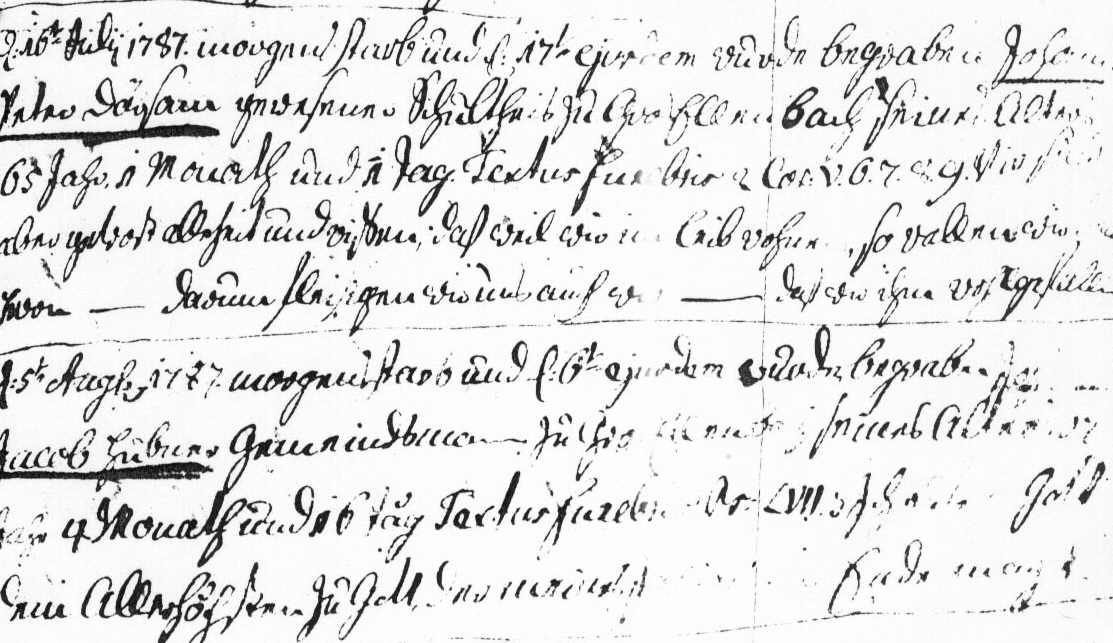 d. 16t July 1787. morgens starb und d. 17t ejusdem wurde begraben Johann
Peter Däysam gewesener Schultheis zu Gros Ellenbach seines Alters
65 Jahr, 1 Monath und 1 Tag. Textus funebris 2 Cor. V. 6. 7. 8. 9. Wir sind
aber getrost allezeit und wissen, daß weil wir im Leib wohnen, so wallen wir
Herrn — darum fleisigen wir uns auch wir — daß wir ihm wohlgefallen
d. 5t Aug. 1787. morgens starb und d. 6t ejusdem wurde begraben
Jacob Hübner Gemeindsmann zu seines Alters
Jahr 4 Monath und 16 Tag Textus funebris Ps. LVII. 3 Ich Gott
dem Allerhöchsten zu Gott, der meines Ende macht